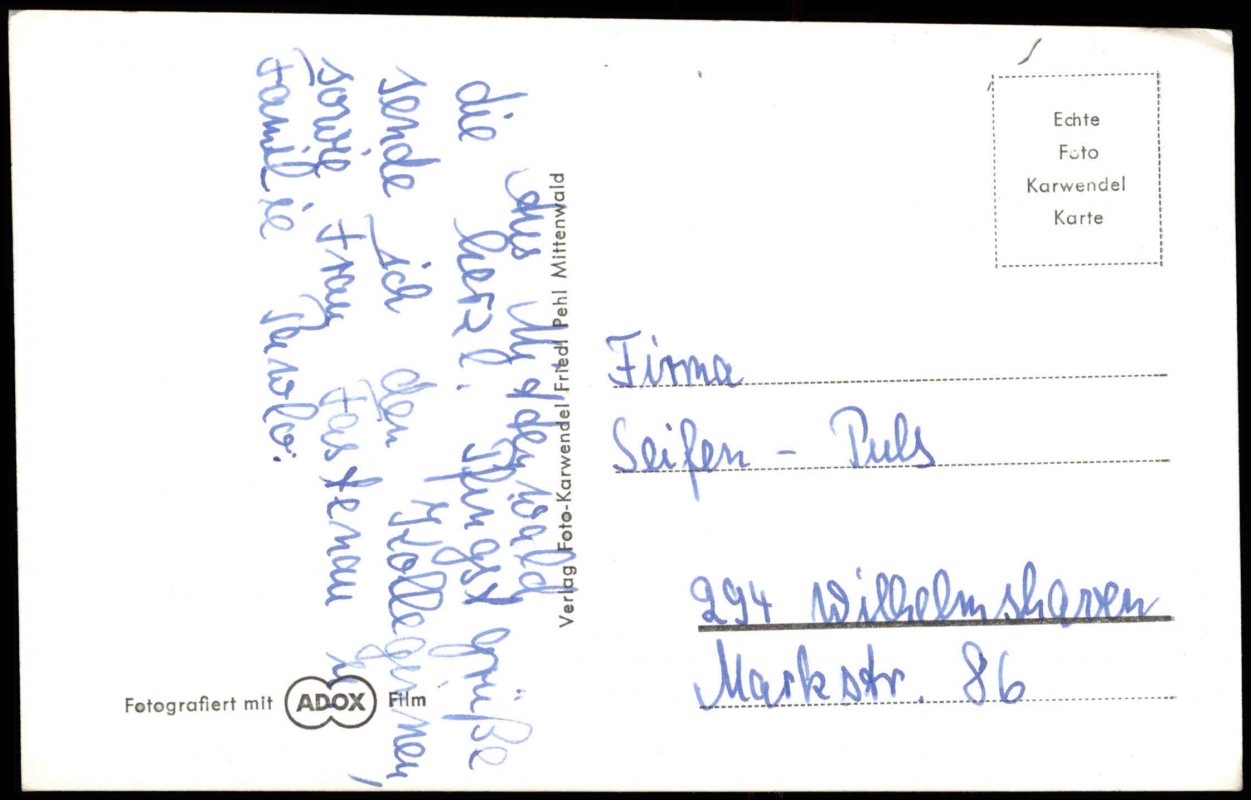 Aus Mittenwald
die herzl. Pfingst grüße
sende ich den Kolleginnen,
sowie Frau Fastenau u.
Familie
Verlag Foto-Karwendel Friedl Pehl Mittenwald
Echte
Foto
Karwendel
Karte
Firma
Seifen - Puls
294 Wilhelmshaven
Markstr. 86
Fotografiert mit ADOX Film